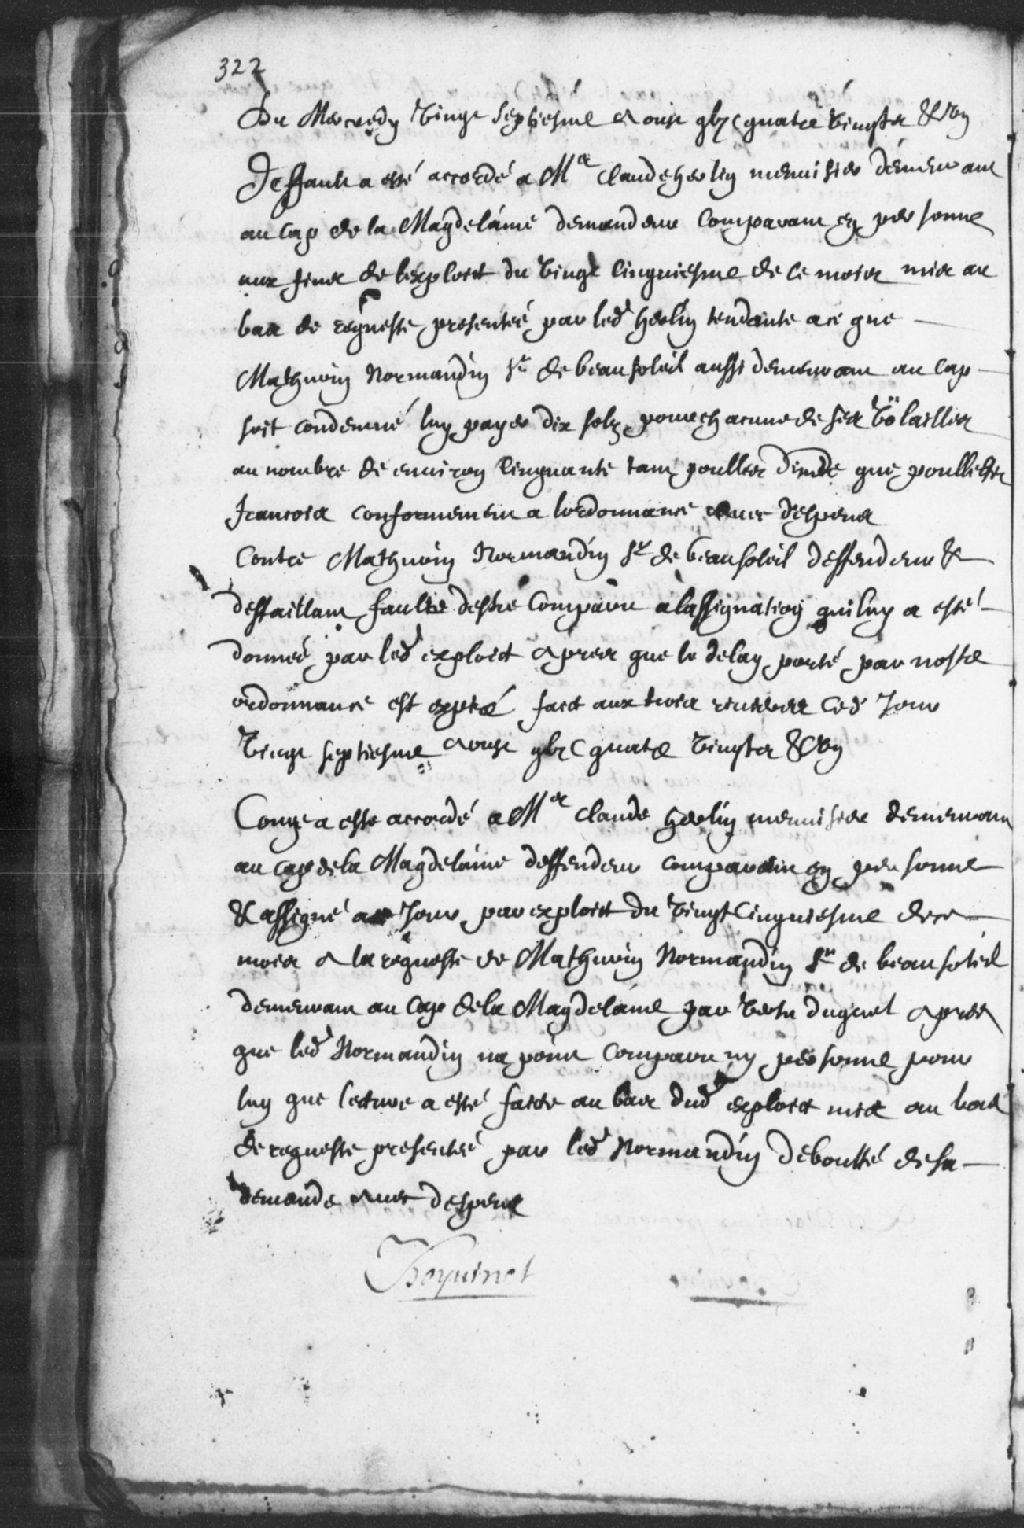 322
Du Mercredy vingt septiesme Aoust gbj c quatre vingts & un
Deffault a esté accordé a Me Claude herlin menuisier demeurant
au Cap de la Magdelaine demandeur Comparant en personne
aux fins de lexploict du vingt Cinquiesme de ce mois mis au
bas de requeste presenteé par led herlin tendante ace que
Mathurin Normandin Sr de beausoleil aussi demeurant au Cap
soit condemné luy payer dix solz pour chacune de ses volailles
au nombre de environ Cinquante tant poulles dinde que poulletz
francois conformement a lordonnance avec despens
Contre Mathurin Normandin Sr de beausoleil deffendeur &
deffaillant faulte destre Comparu alassignation quiluy a esté
donneé par led exploict apres que le delay porté par nostre
ordonnance est expiré faict aux trois rivieres Ced Jour
vingt septiesme Aoust gbj c quatre vingts & un
Conge a esté accordé a Me Claude herlin menuisier demeurant
au cap dela Magdelaine deffendeur comparant en personne
& assigné a ce Jour par exploict du vingt Cinquiesme dece
mois A la requeste de Mathurin Normandin Sr de beausoleil
demeurant au Cap dela Magdelaine par duguet apres
que led Normandin na point Comparu ny personne pour
luy que lecture a esté faicte au bas dud exploict mis au bas
de requeste presenteé par led Normandin deboutté de sa
demande avec despens
Boyvinet